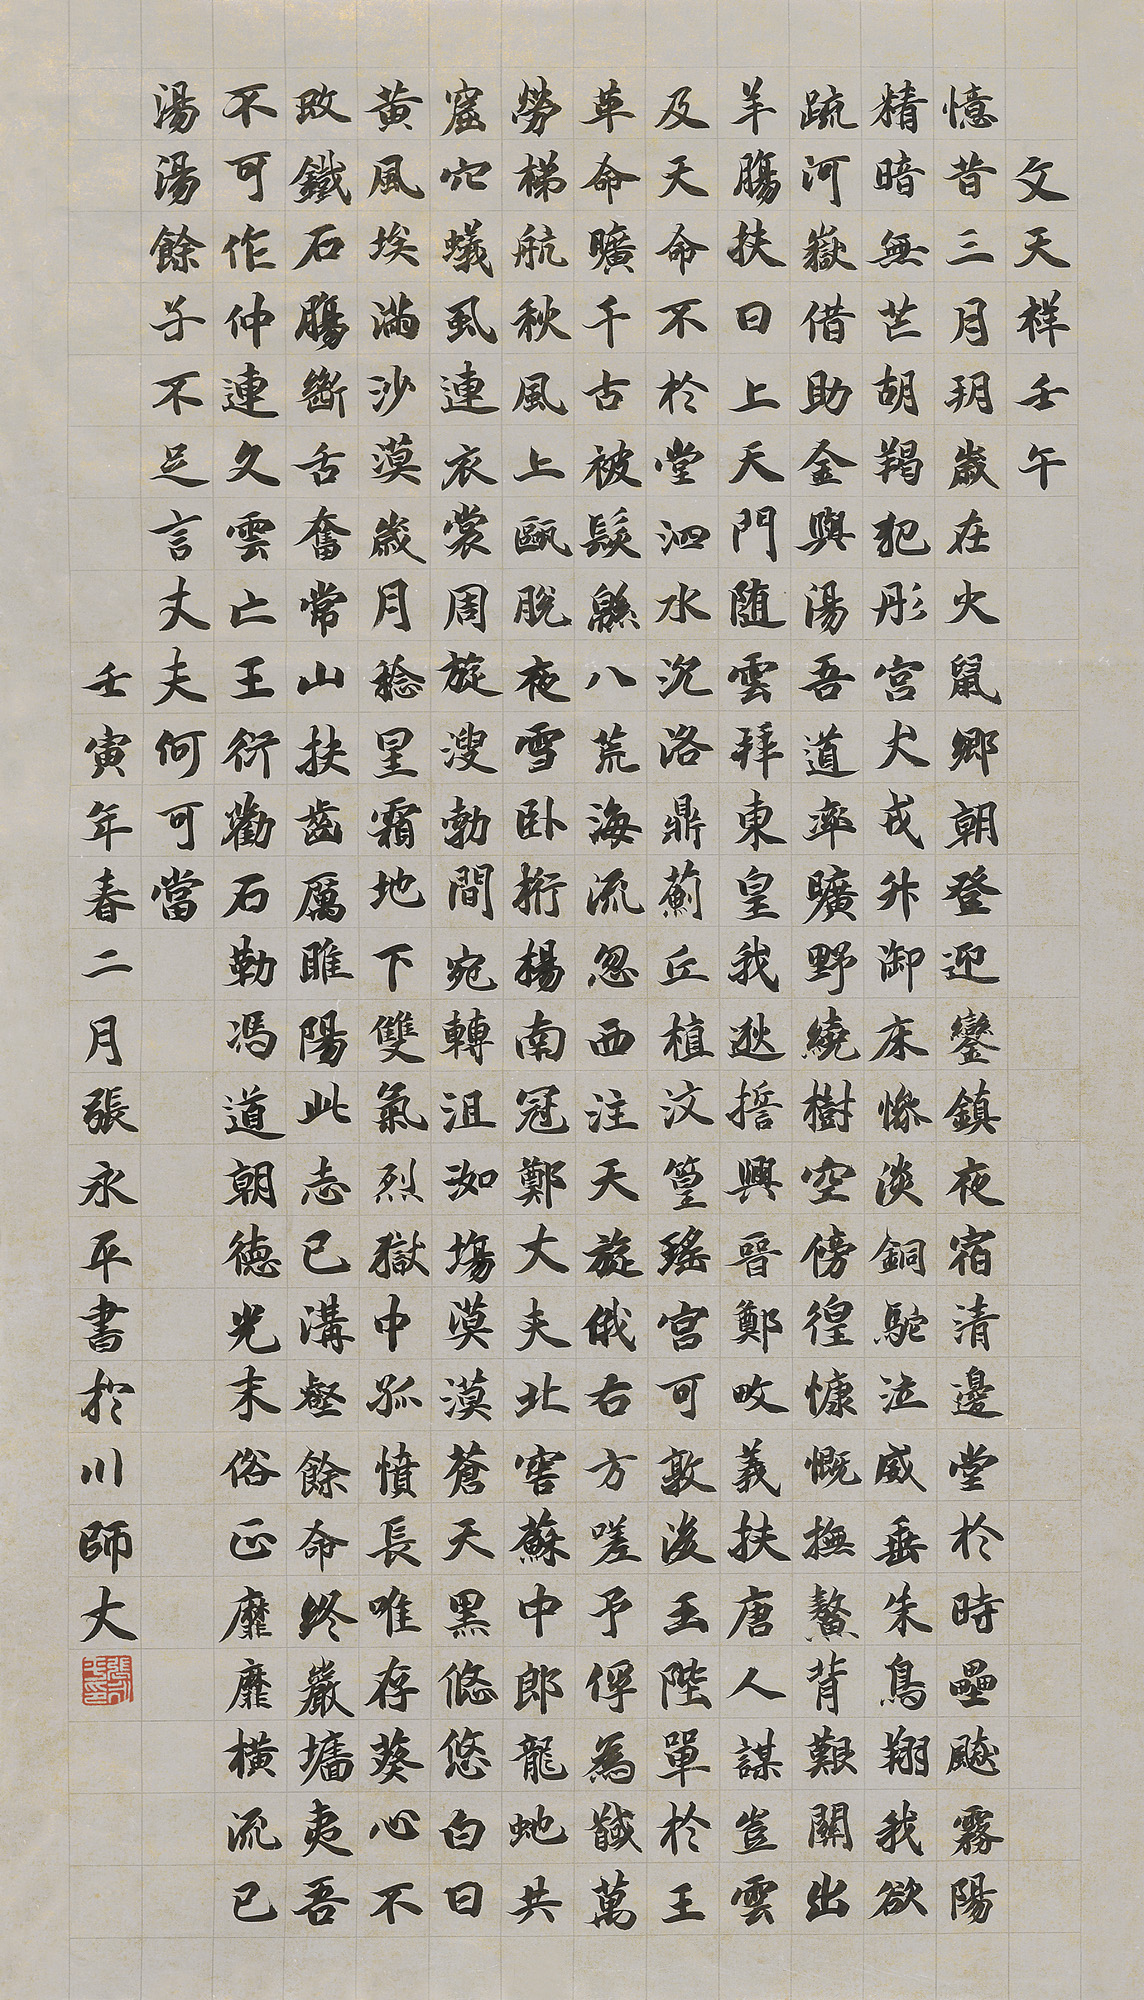 文天祥壬午
憶昔三月朔歲在火鼠鄉朝登迎鑾鎮夜宿清邊堂於時壘飈霧陽
精暗無芒胡羯犯彤宮犬戎升御床慘淡銅駝泣威垂朱鳥翔我欲
疏河嶽借助金與湯吾道率曠野繞樹空傍徨慷慨撫鰲背艱關出
羊腸扶日上天門随雲拜東皇我逖誓興晉鄭畋義扶唐人謀豈雲
及天命不於堂泗水沉洛鼎薊丘植汶篁瑤宮可敦後玉陛單於王
革命曠千古被髮緜八荒海流忽西注天旋俄右方嗟予俘為馘萬
勞梯航秋風上甌脫夜雪卧桁楊南冠鄭大夫北窖蘇中郎龍虵共
窟穴蟻虱連衣裳周旋溲勃間宛轉沮洳場漠漠蒼天黑悠悠白日
黄風埃滿沙漠歲月稔星霜地下雙氣烈獄中孤憤長唯存葵心不
改鐵石腸斷舌奮常山抉齒厲睢陽此志已溝壑餘命终巖墻夷吾
不可作仲連久雲亡王衍勸石勒馮道朝德光末俗正靡靡横流已
湯湯餘子不足言丈夫何可當
壬寅年春二月張永平書於川師大